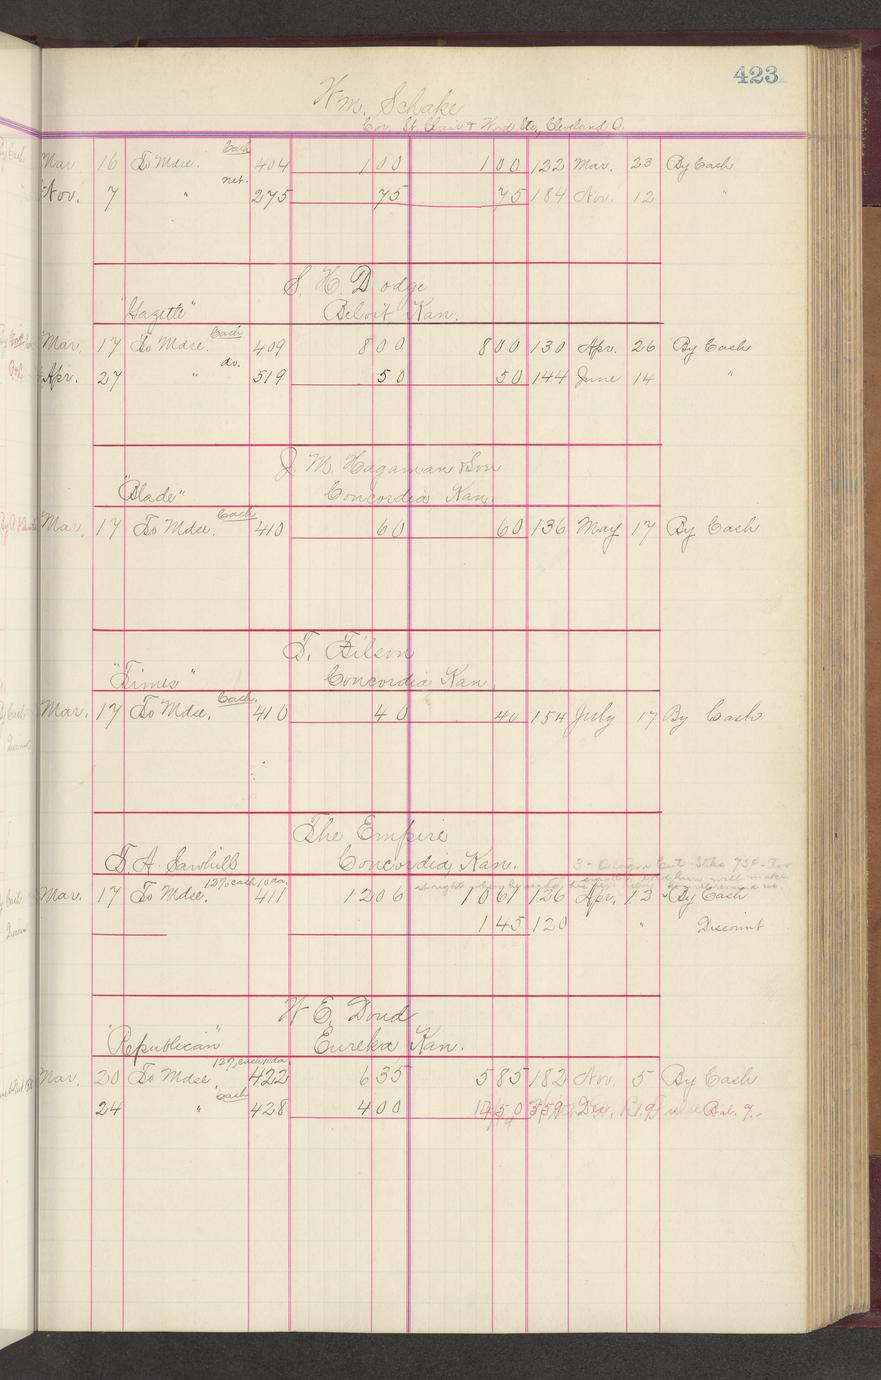 423
Wm. Schake
Cor. St. Clair & Wood Sts, Cleveland O.
Mar. 16 To Mdse. Cash 404 1 00 1 00 122 Mar. 23 By Cash
Nov. 7 " net. 275 75 75 184 Nov. 12 "
S. H. Dodge
"Gazette" Beloit, Kan.
Mar. 17 To Mdse. Cash 409 8 00 8 00 130 Apr. 26 By Cash
Apr. 27 " do. 519 50 50 144 June 14 "
J. M. Hagaman & Son
"Blade" Concordia, Kan.
Mar. 17 To Mdse. Cash 410 60 60 136 May 17 By Cash
T. Filson
"Times" Concordia Kan.
Mar. 17 To Mdse. Cash. 410 40 40 154 July 17 By Cash
The Empire
T. A. Sawhill Concordia, Kan.
Mar. 17 To Mdse. 12% cash 10 da. 411 12 06 10 61 126 Apr. 12 By Cash
1 45 120 " Discount
W. E. Doud
"Republican" Eureka Kan.
Mar. 20 To Mdse. 12% cash 10 da. 422 6 35 5 85 182 Nov. 5 By Cash
24 " Cash 428 4 00 4 50 Dec. Bal.